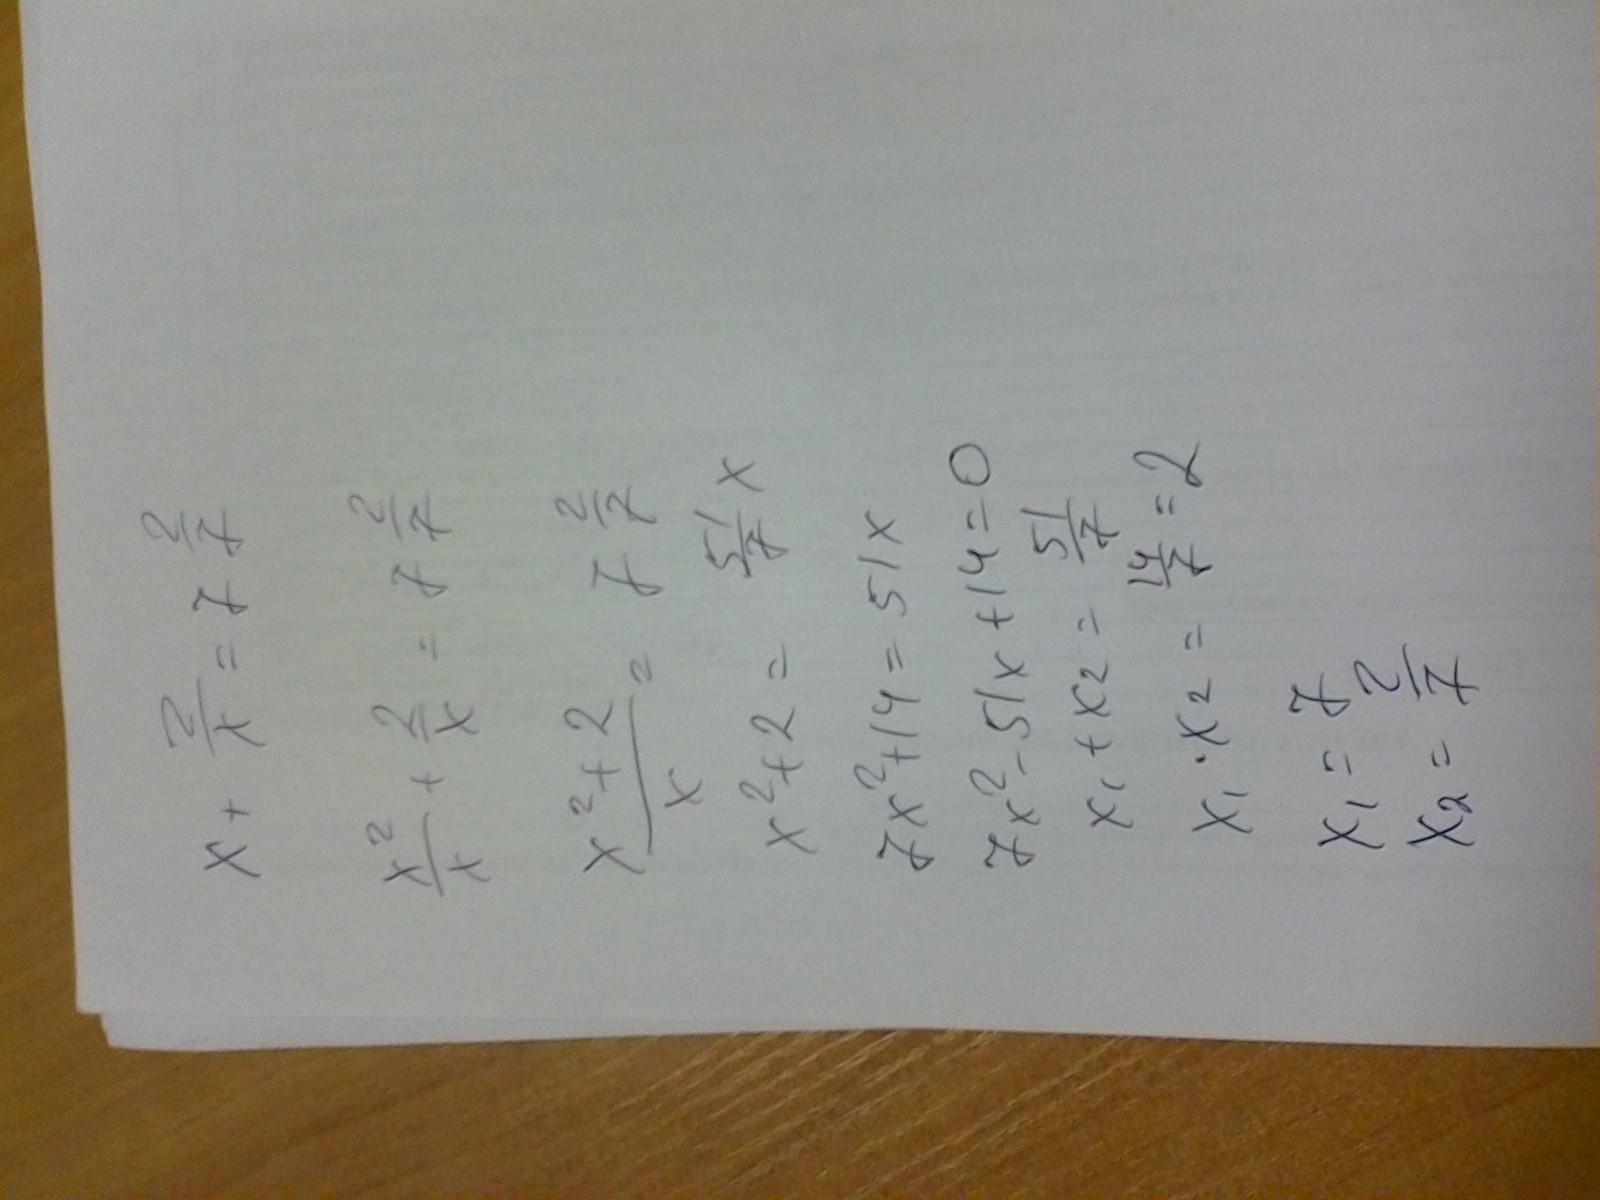 x + 2/x = 7 2/7
x²/x + 2/x = 7 2/7
(x² + 2)/x = 7 2/7
x² + 2 = 51/7 x
7x² + 14 = 51x
7x² - 51x + 14 = 0
x₁ + x₂ = 51/7
x₁ · x₂ = 14/7 = 2
x₁ = 7
x₂ = 2/7